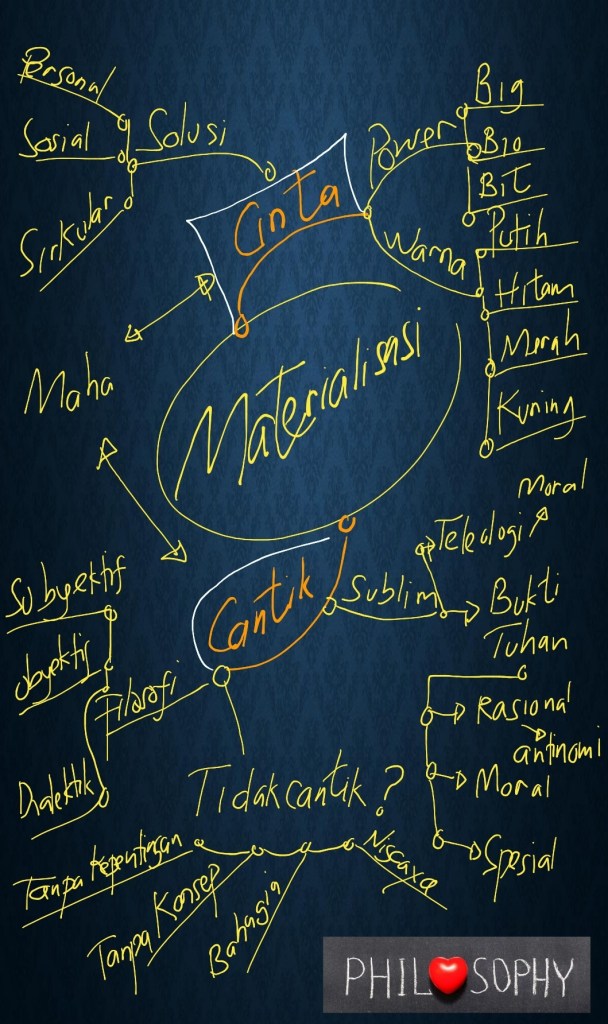 Personal
Sosial
Sirkular
Solusi
Cinta
Power
Big
Bio
Bit
Warna
Putih
Hitam
Merah
Kuning
Maha
Materialisasi
Cantik
Sublim
Teleologi
Moral
Bukti
Tuhan
Rasional
antinomi
Moral
Spesial
Subyektif
Obyektif
Dialektik
Filosofi
Tidak cantik?
Tanpa Kepentingan
Tanpa Konsep
Bahagia
PHILOSOPHY